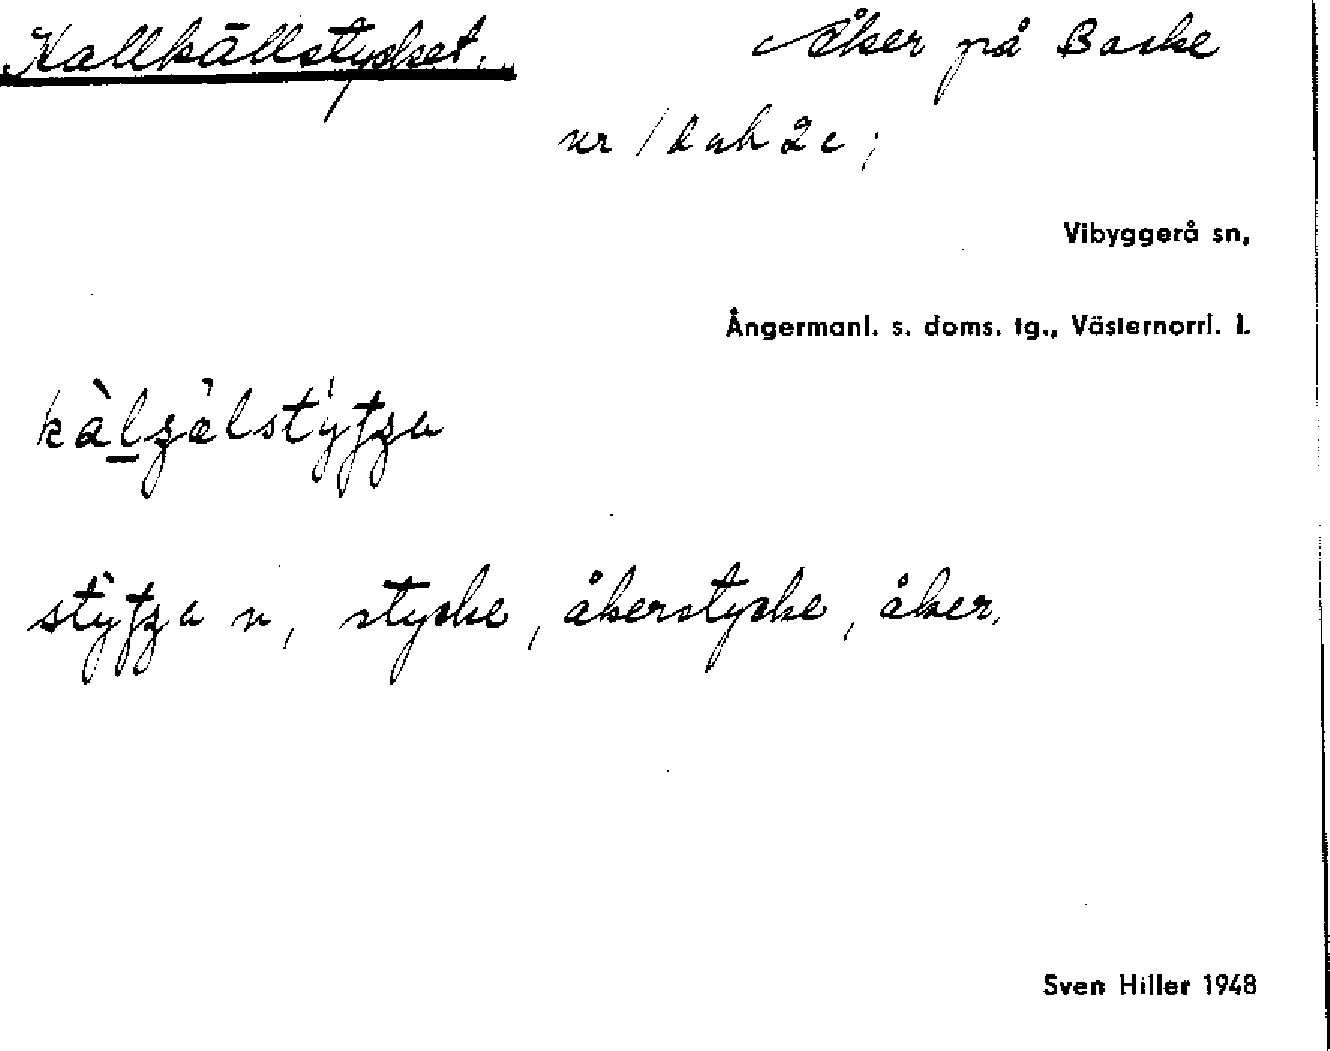 Kallkällstycket. Åker på Backe
nr 1 d och 2 c;
Vibyggerå sn,
Ångermanl. s. doms. tg., Västernorrl. l.
stycke, åkerstycke, åker.
Sven Hiller 1948